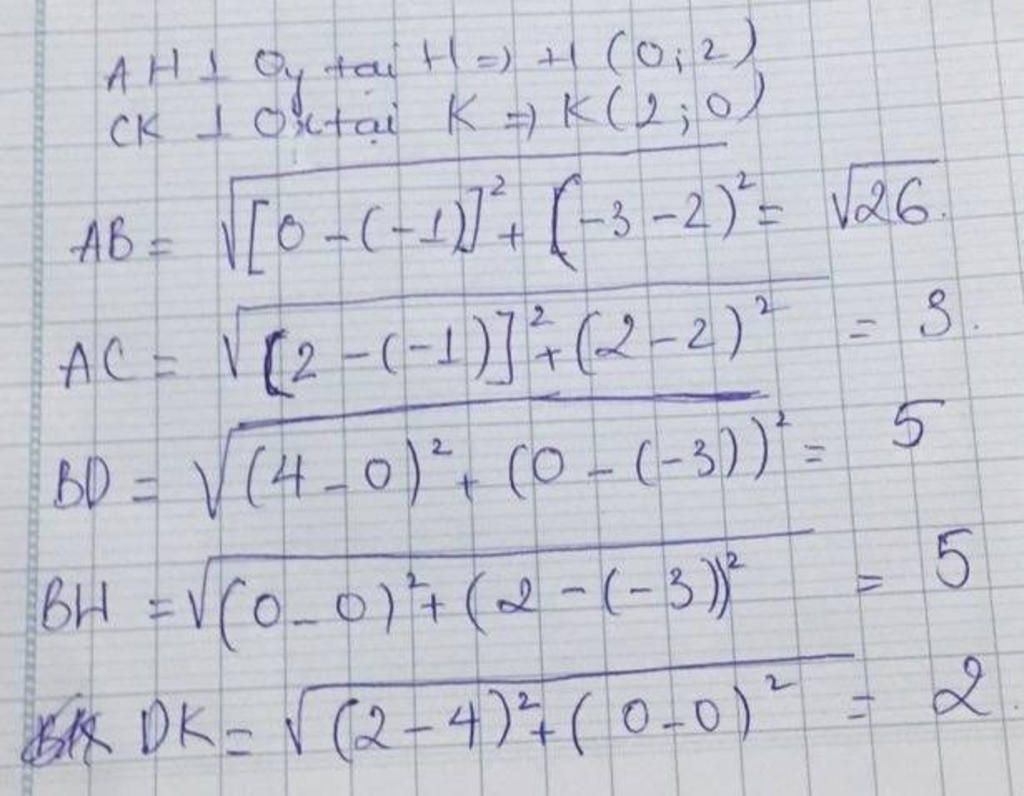 AH ⊥ Oy tại H => H (0; 2)
CK ⊥ Ox tại K => K (2; 0)
AB = √[0 - (-1)]² + (-3 - 2)² = √26.
AC = √[2 - (-1)]² + (2 - 2)² = 3.
BD = √(4 - 0)² + (0 - (-3))² = 5
BH = √(0 - 0)² + (2 - (-3))² = 5
DK = √(2 - 4)² + (0 - 0)² = 2.